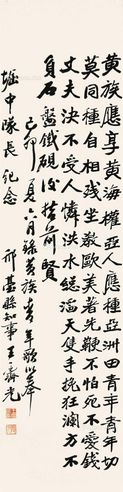 黄族應享黄海權亞人應種亞洲田青年青年
莫同種自相殘坐教歐美著先鞭不怕死不愛錢
丈夫決不受人憐洪水縱滔天隻手挽狂瀾方不
負石盤鐵硯後哲前賢
己卯夏六月錄黄族青年歌以奉
堀中隊長 紀念
邢臺縣知事王齋光